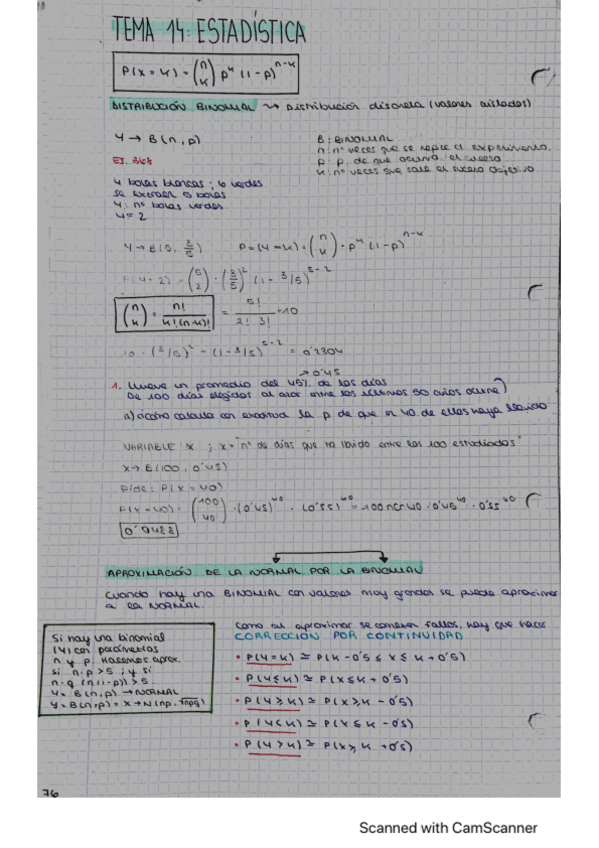 TEMA 14: ESTADÍSTICA
P(X = k) = (n k) p^k (1 - p)^n-k
DISTRIBUCIÓN BINOMIAL ↝ Distribución discreta (valores aislados)
Y → B(n, p)
B: BINOMIAL
n: nº veces que se repite el experimento.
p: p. de que ocurra el suceso
k: nº veces que sale el suceso objetivo
EJ. 368
4 bolas blancas; 6 verdes
se extraen 5 bolas
Y: nº bolas verdes
k = 2
Y → B(5, 3/5) P = (Y = k) = (n k) · p^k (1 - p)^n-k
P(Y = 2) = (5 2) · (3/5)^2 (1 - 3/5)^5-2
(n k) = n! / k!(n-k)! = 5! / 2! 3! = 10
10 · (3/5)^2 - (1 - 3/5)^5-2 = 0'2304
→ 0'45
1. Llueve un promedio del 45% de los días
De 100 días elegidos al azar entre los últimos 50 años ocurre
a) cómo calcular con exactitud la p de que el 40 de ellos haya llovido
VARIABLE: X ; X = "nº de días que ha llovido entre los 100 estudiados"
X → B(100, 0'45)
Pide: P(X = 40)
P(X = 40) = (100 40) · (0'45)^40 · (0'55)^40 = 100 nCr 40 · 0'45^40 · 0'55^40
0'0488
APROXIMACIÓN DE LA NORMAL POR LA BINOMIAL
Cuando hay una BINOMIAL con valores muy grandes se puede aproximar
a la NORMAL.
Si hay una binomial
(Y) con parámetros
n y p. Hacemos aprox.
si n·p > 5 ; y si
n·q (n(1-p)) > 5.
Y = B(n, p) → NORMAL
Y = B(n, p) = X → N(np, √npq)
Como al aproximar se cometen fallos, hay que hacer
CORRECCIÓN POR CONTINUIDAD
• P(Y = k) ≅ P(k - 0'5 ≤ X ≤ k + 0'5)
• P(Y ≤ k) ≅ P(X ≤ k + 0'5)
• P(Y ≥ k) ≅ P(X ≥ k - 0'5)
• P(Y < k) ≅ P(X ≤ k - 0'5)
• P(Y > k) ≅ P(X ≥ k + 0'5)
76
Scanned with CamScanner